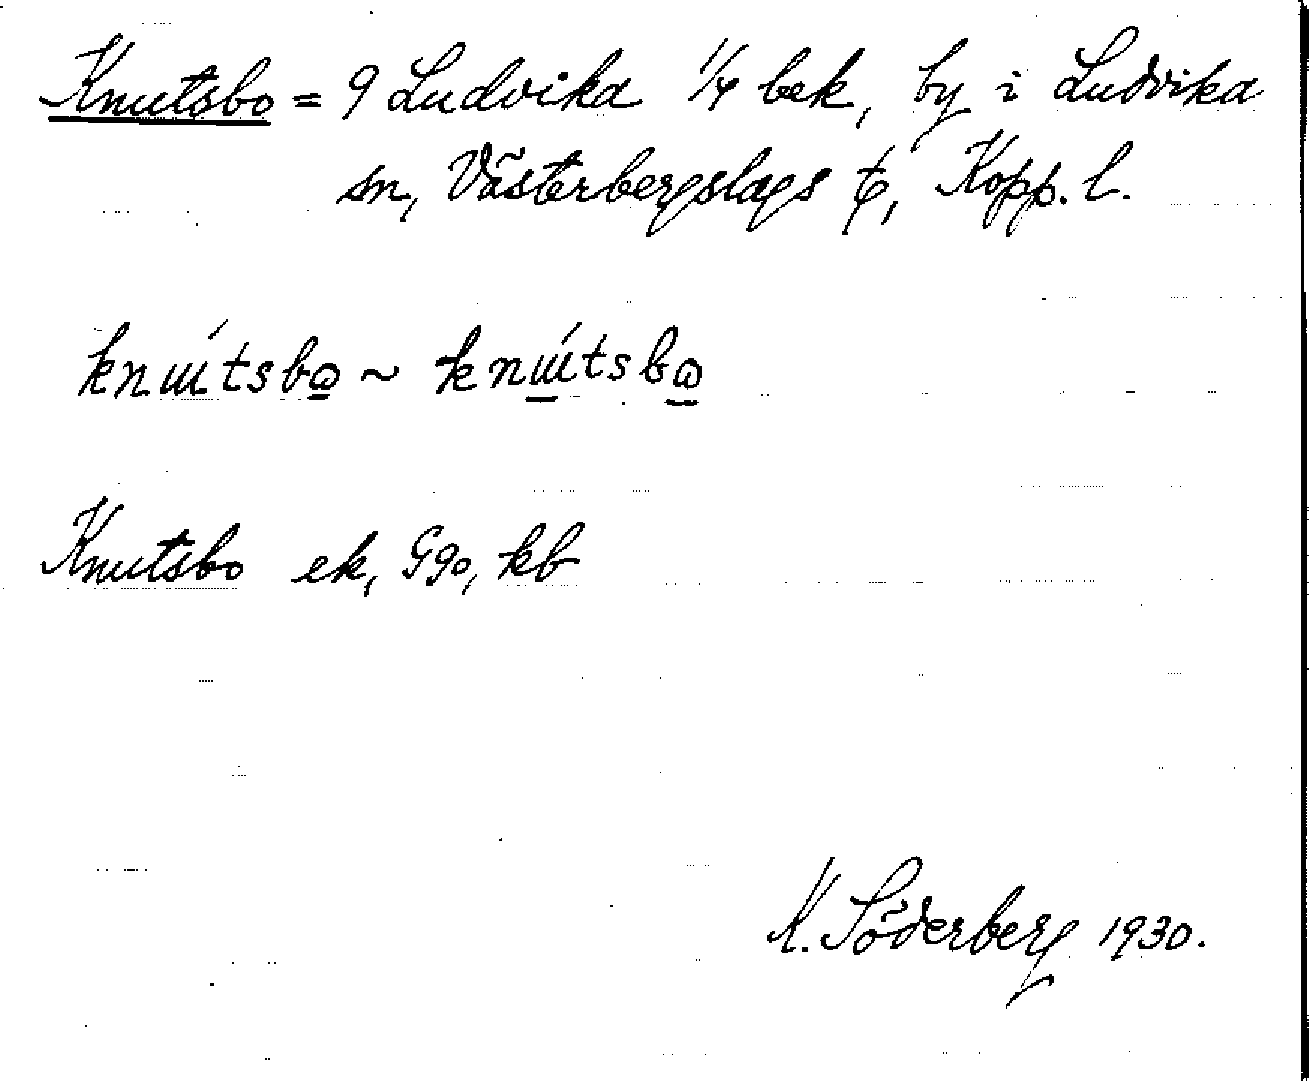 Knutsbo = 9 Ludvika 1/4 bek, by i Ludvika
sn, Västerbergslags, Kopp. l.
Knutsbo ek, Ggo, kb
K. Söderberg 1930.